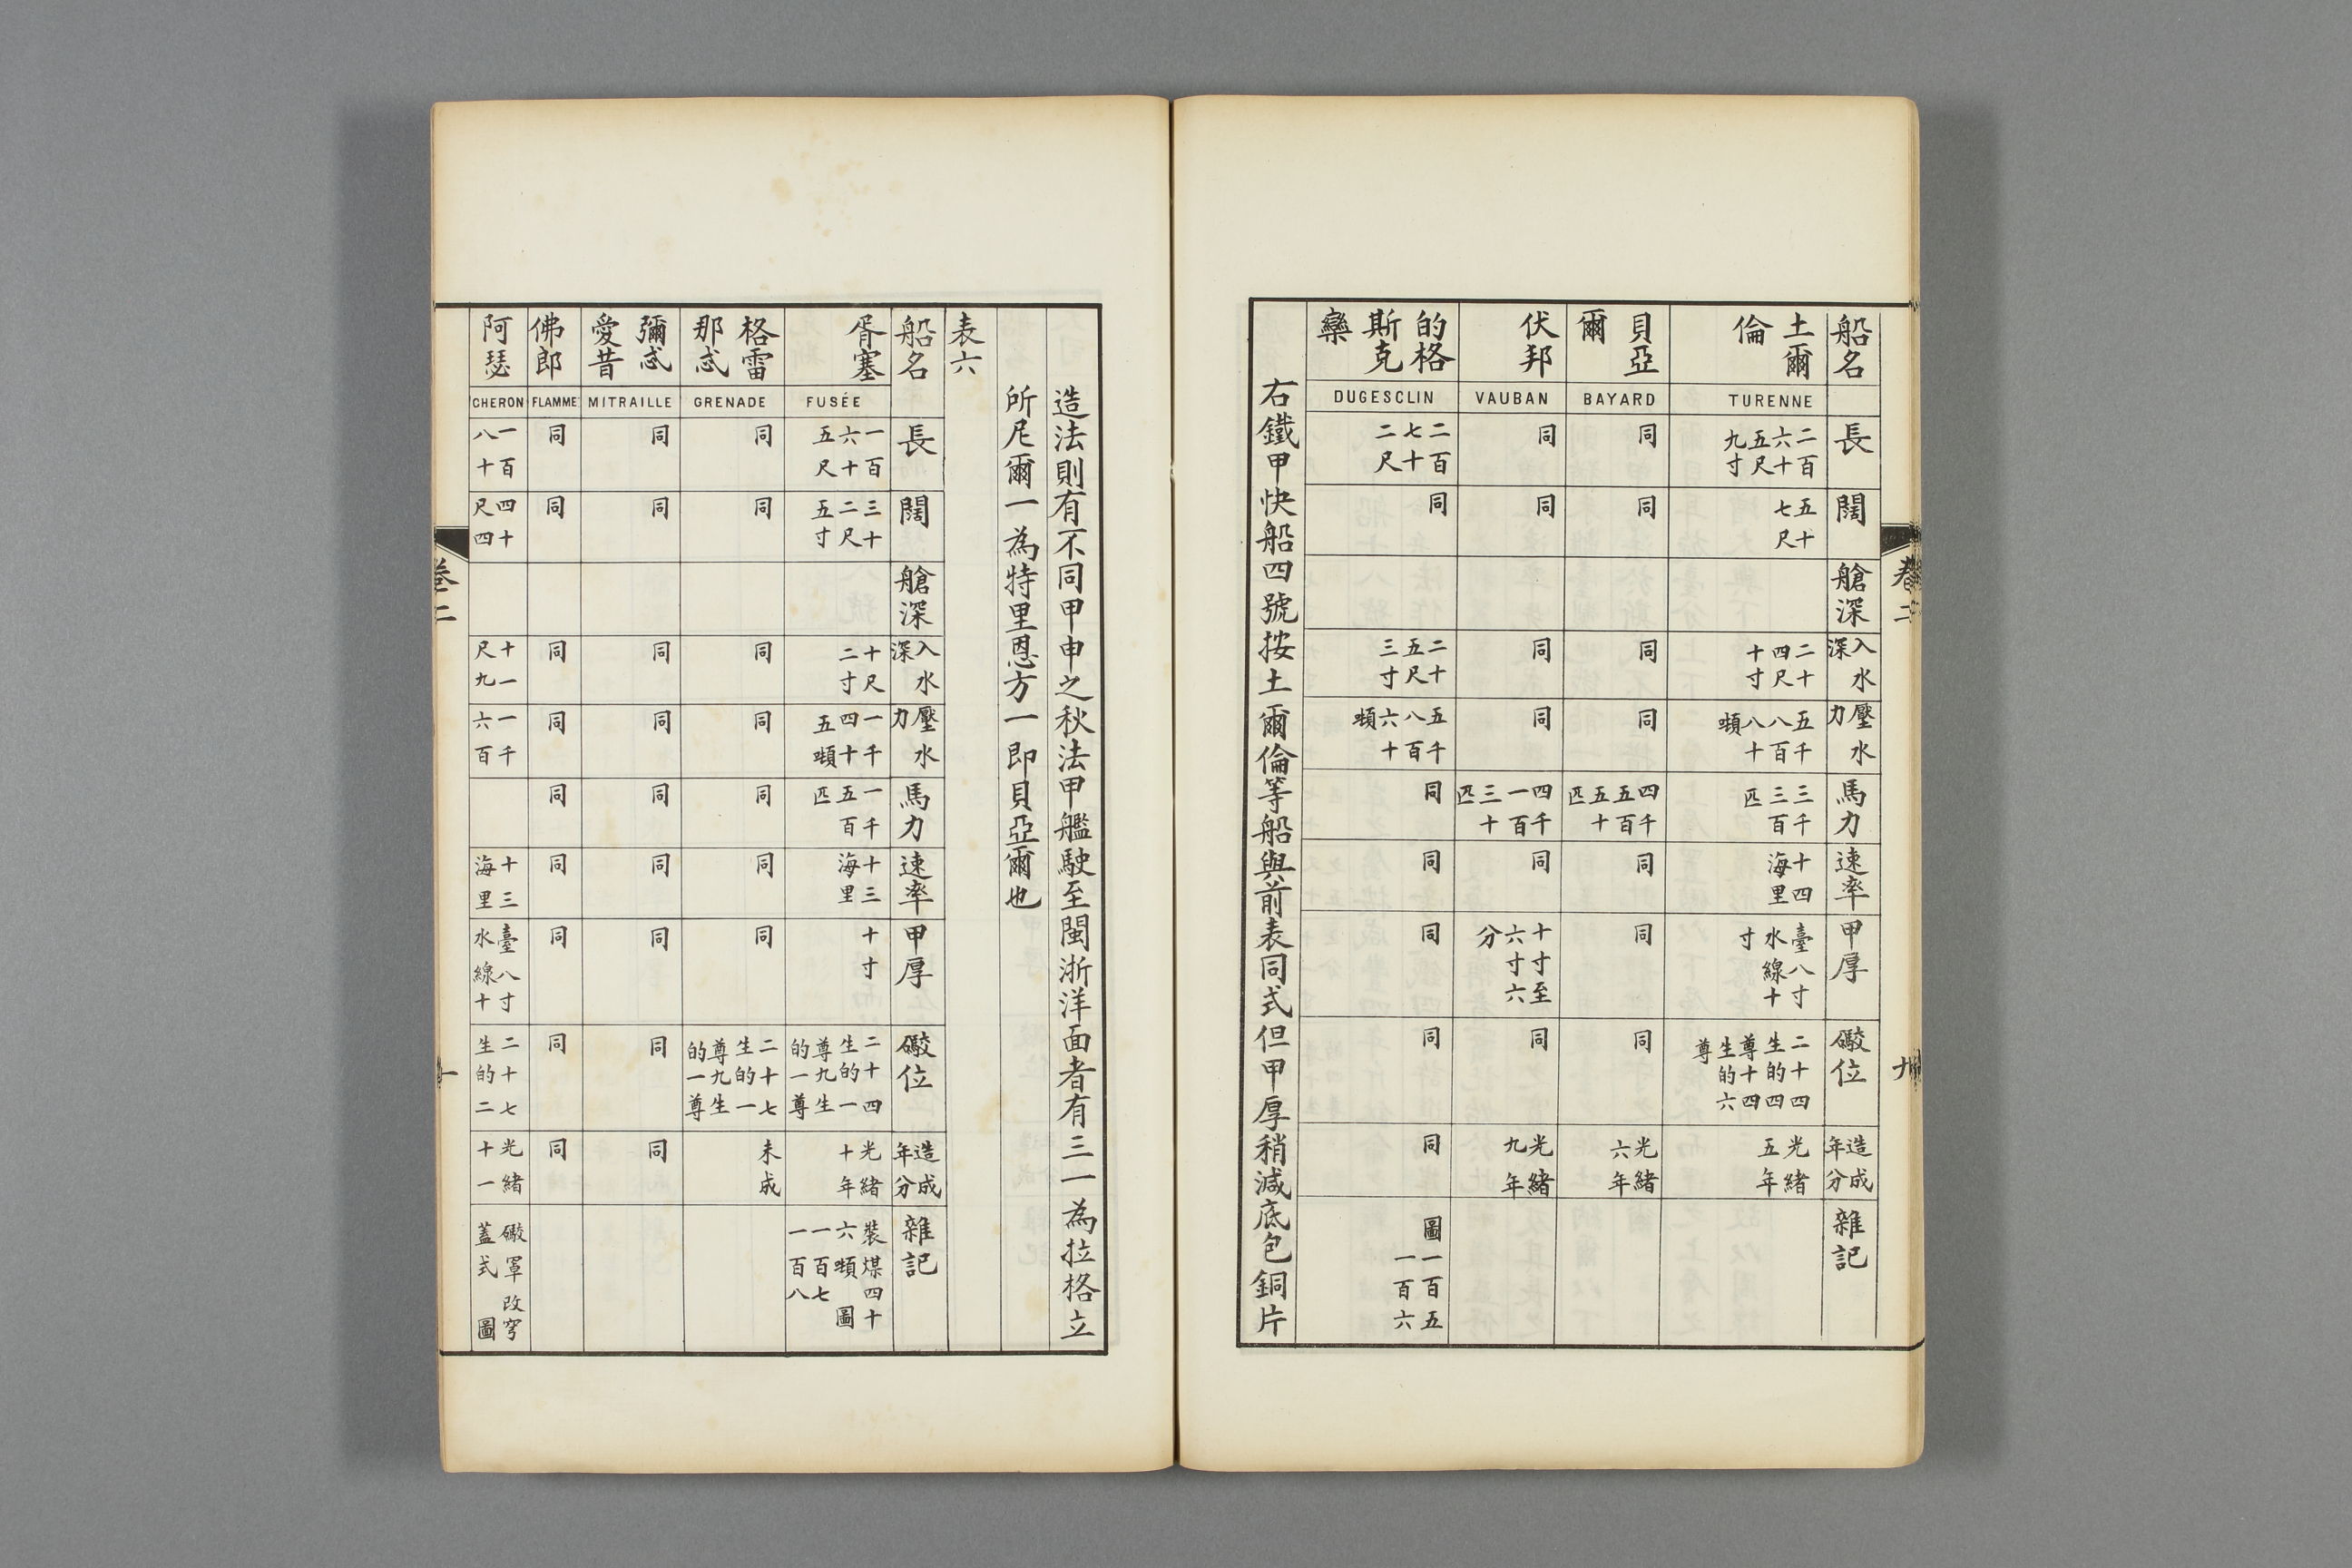 船名
長
闊
艙深
入水深
壓水力
馬力
速率
甲厚
礮位
造成年分
雜記
土爾倫
TURENNE
二百六十五尺九寸
五十七尺
二十四尺十寸
五千八百八十噸
三千三百匹
十四海里
臺八寸水線十寸
二十四生的四尊十四生的六尊
光緒五年
貝亞爾
BAYARD
同
同
同
同
四千五百五十匹
同
同
同
光緒六年
伏邦
VAUBAN
同
同
同
同
四千一百三十匹
同
十寸至六寸六分
同
光緒九年
的格斯克欒
DUGESCLIN
二百七十二尺
同
二十五尺三寸
五千八百六十噸
同
同
同
同
同
圖一百五一百六
右鐵甲快船四號按土爾倫等船與前表同式但甲厚稍減底包銅片
卷二
九
造法則有不同甲申之秋法甲艦駛至閩浙洋面者有三一為拉格立
所尼爾一為特里恩方一即貝亞爾也
表六
船名
長
闊
艙深
入水深
壓水力
馬力
速率
甲厚
礮位
造成年分
雜記
胥塞
FUSÉE
一百六十五尺
三十二尺五寸
十尺二寸
一千四十五噸
一千五百匹
十三海里
十寸
二十四生的一尊九生的一尊
光緒十年
裝煤四十六噸 圖一百七一百八
格雷那忒
GRENADE
同
同
同
同
同
同
同
二十七生的一尊九生的一尊
未成
彌忒愛昔
MITRAILLE
同
同
同
同
同
同
同
同
同
佛郎
FLAMME
同
同
同
同
同
同
同
同
同
阿瑟
CHERON
一百八十
四十尺四
十一尺九
一千六百
十三海里
臺八寸水線十
二十七生的二
光緒十一
礮罩改穹蓋式 圖
卷二